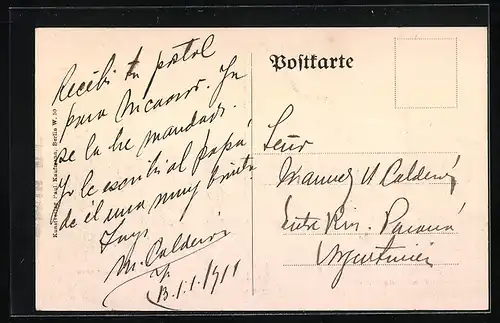 Recibí tu postal
para Nicanor. Ya
se la he mandado.
Yo le escribí al papá
de él una muy bonita
Tuyo
M. Calderón
B. 1.1./1911
Postkarte
Señor
Manuel Calderón
Entre Rios. Paraná
Argentina
Kunstverlag Paul Kaufmann, Berlin W. 30